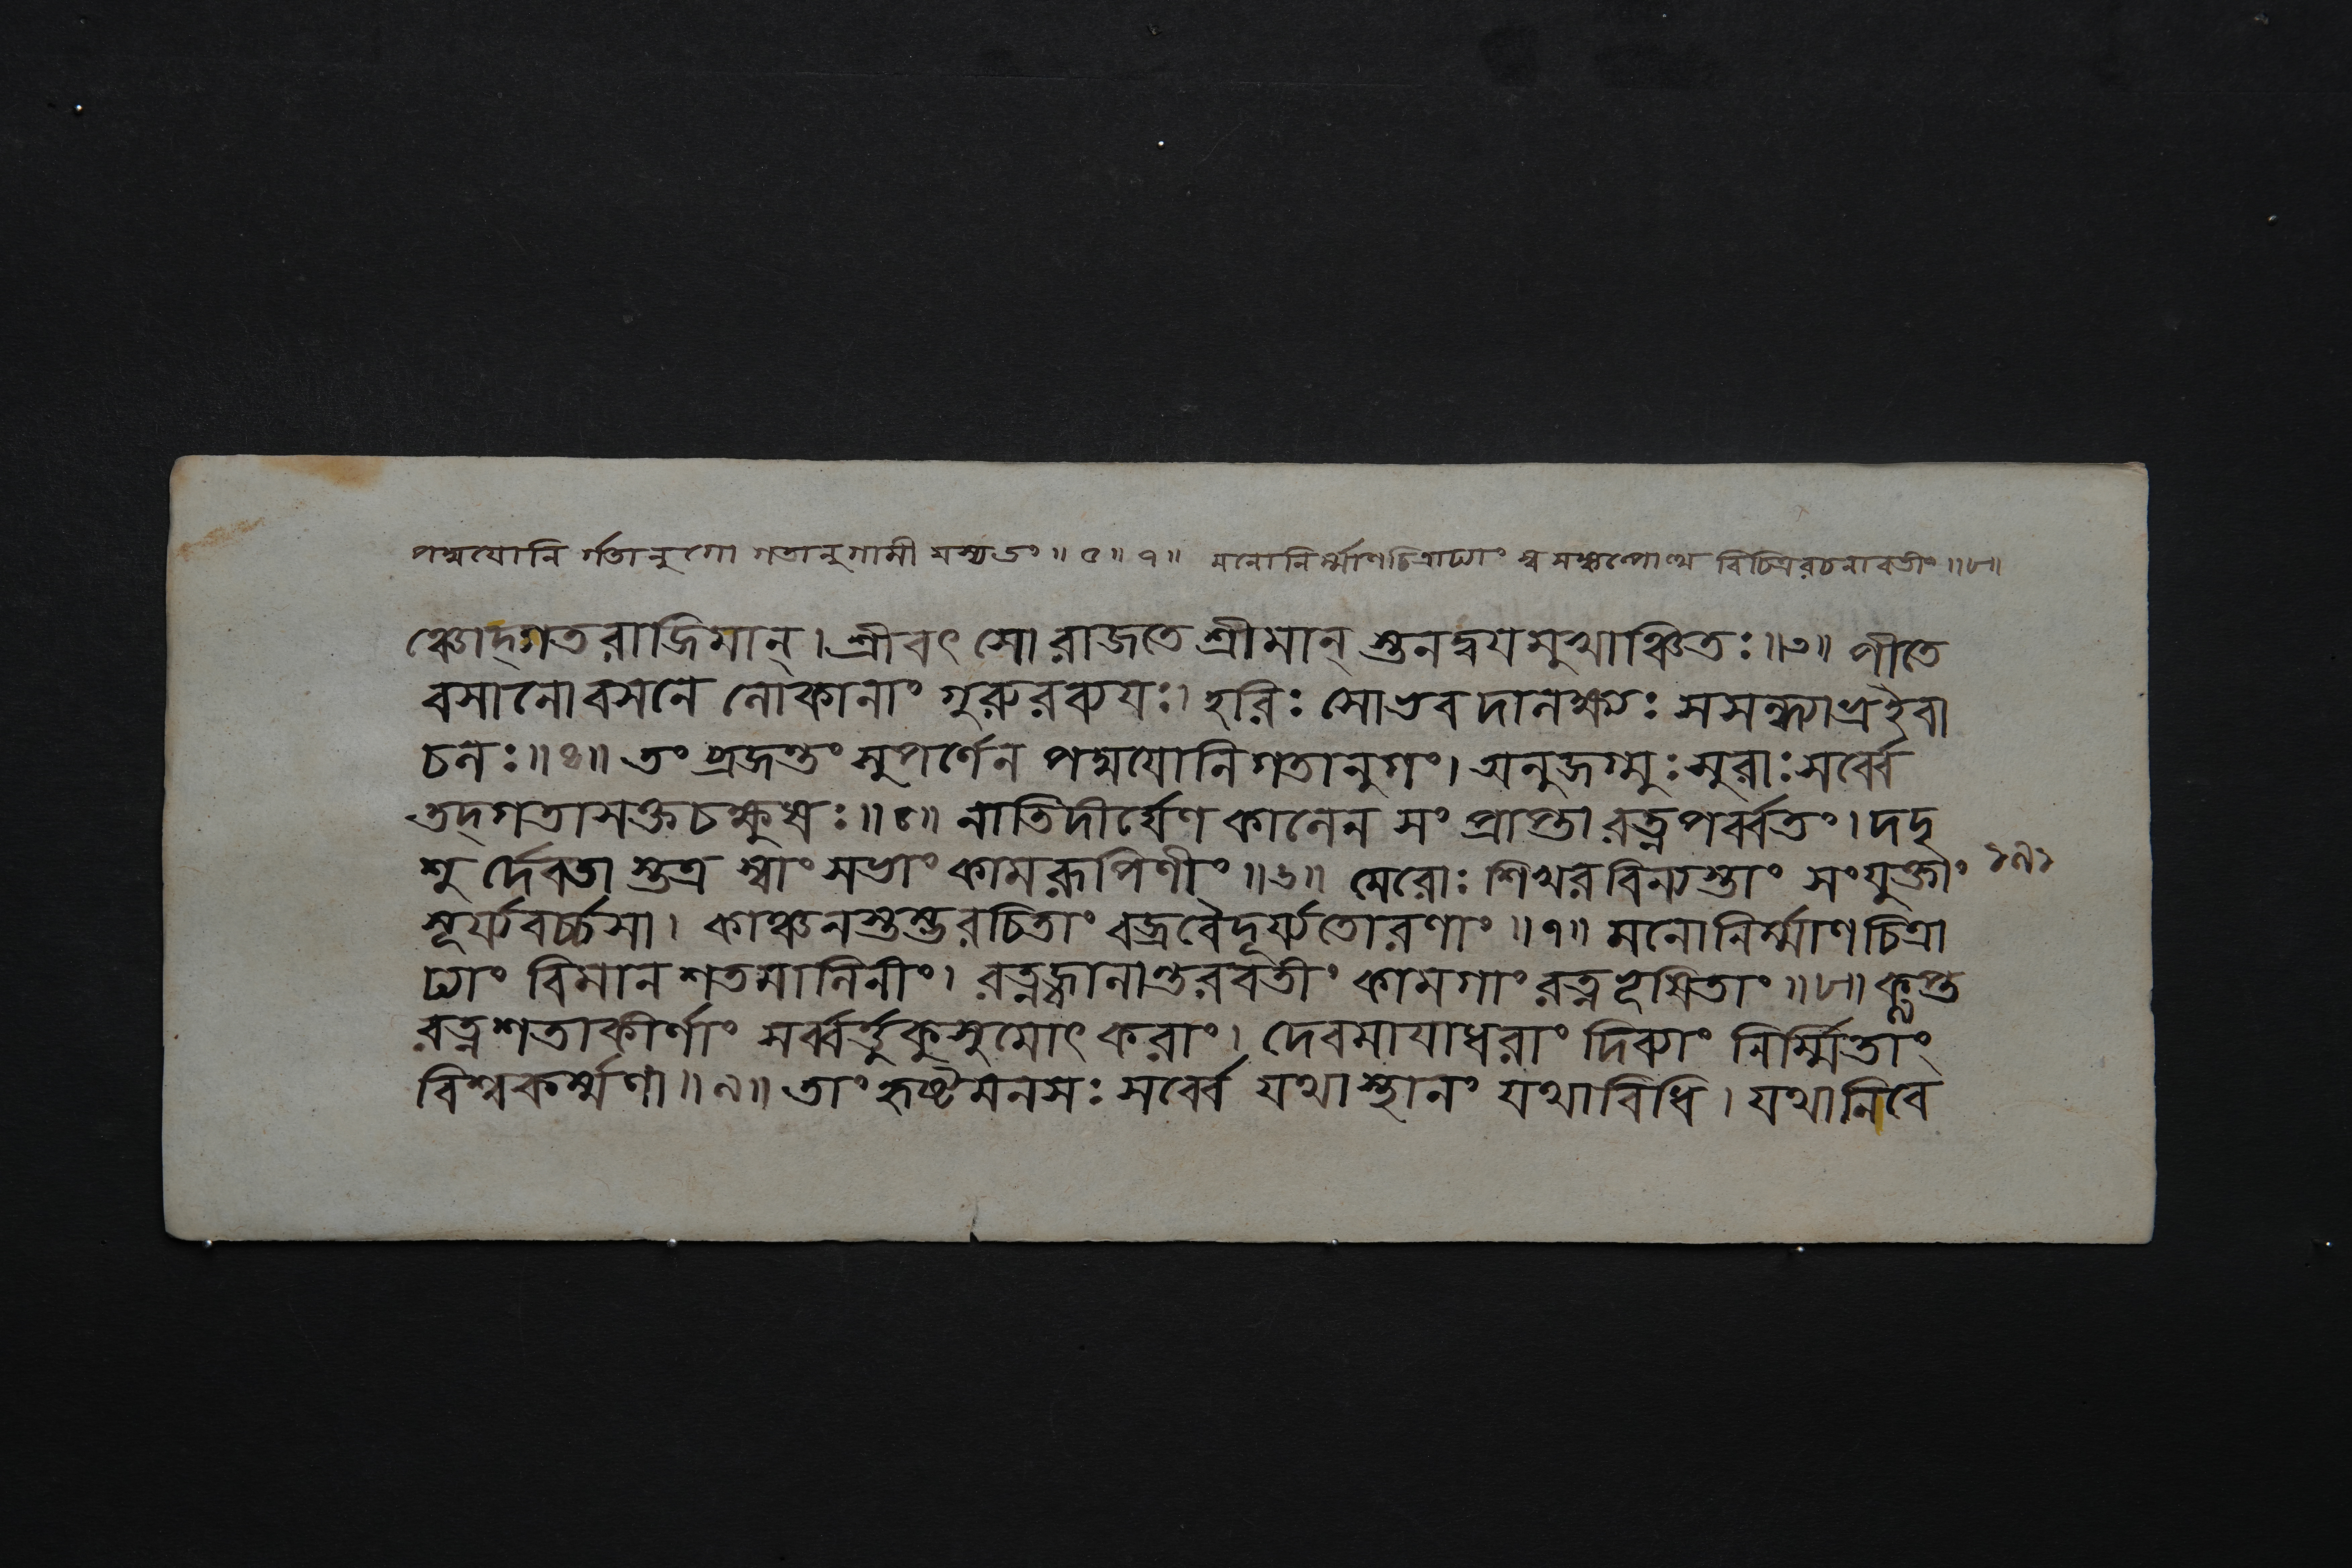 পদ্মযোনি র্গতানুগো গতানুগামী যস্য তং ॥ ৫ ॥ ৭ ॥ মনোনির্ম্মাণচিত্রাঢ্যাং বিচিত্ররচনাবতীং ॥ ৮ ॥
ঞ্চোদ্গতরাজিমান্। শ্রীবৎসো রাজতে শ্রীমান্ স্তনদ্বযমুখাঞ্চিতঃ ॥ ৩ ॥ পীতে
বসানো বসনে লোকানাং গুরুরব্যযঃ। হরিঃ সোঽভবদালক্ষ্যঃ সসন্ধ্যাভ্র ইবা
চলঃ ॥ ৪ ॥ তং ব্রজন্তং সুপর্ণেন পদ্মযোনিগতানুগং। অনুজগ্মুঃ সুরাঃ সর্ব্বে
তদ্গতাসক্তচক্ষুষঃ ॥ ৫ ॥ নাতিদীর্ঘেণ কালেন সংপ্রাপ্তা রত্নপর্ব্বতং। দদৃ
শু র্দেবতা স্তত্র স্বাং সভাং কামরূপিণীং ॥ ৬ ॥ মেরোঃ শিখরবিন্যস্তাং সংযুক্তাং
সূর্য্যবর্চ্চসা। কাঞ্চনস্তম্ভরচিতাং বজ্রবৈদূর্য্যতোরণাং ॥ ৭ ॥ মনোনির্ম্মাণচিত্রা
ঢ্যাং বিমানশতমালিনীং। রত্নজালান্তরবতীং কামগাং রত্নভূষিতাং ॥ ৮ ॥ কৢপ্ত
রত্নশতাকীর্ণাং সর্ব্বর্ত্তুকুসুমোৎকরাং। দেবমাযাধরাং দিব্যাং নির্ম্মিতাং
বিশ্বকর্ম্মণা ॥ ৯ ॥ তাং হৃষ্টমনসঃ সর্ব্বে যথাস্থানং যথাবিধি। যথানিবে